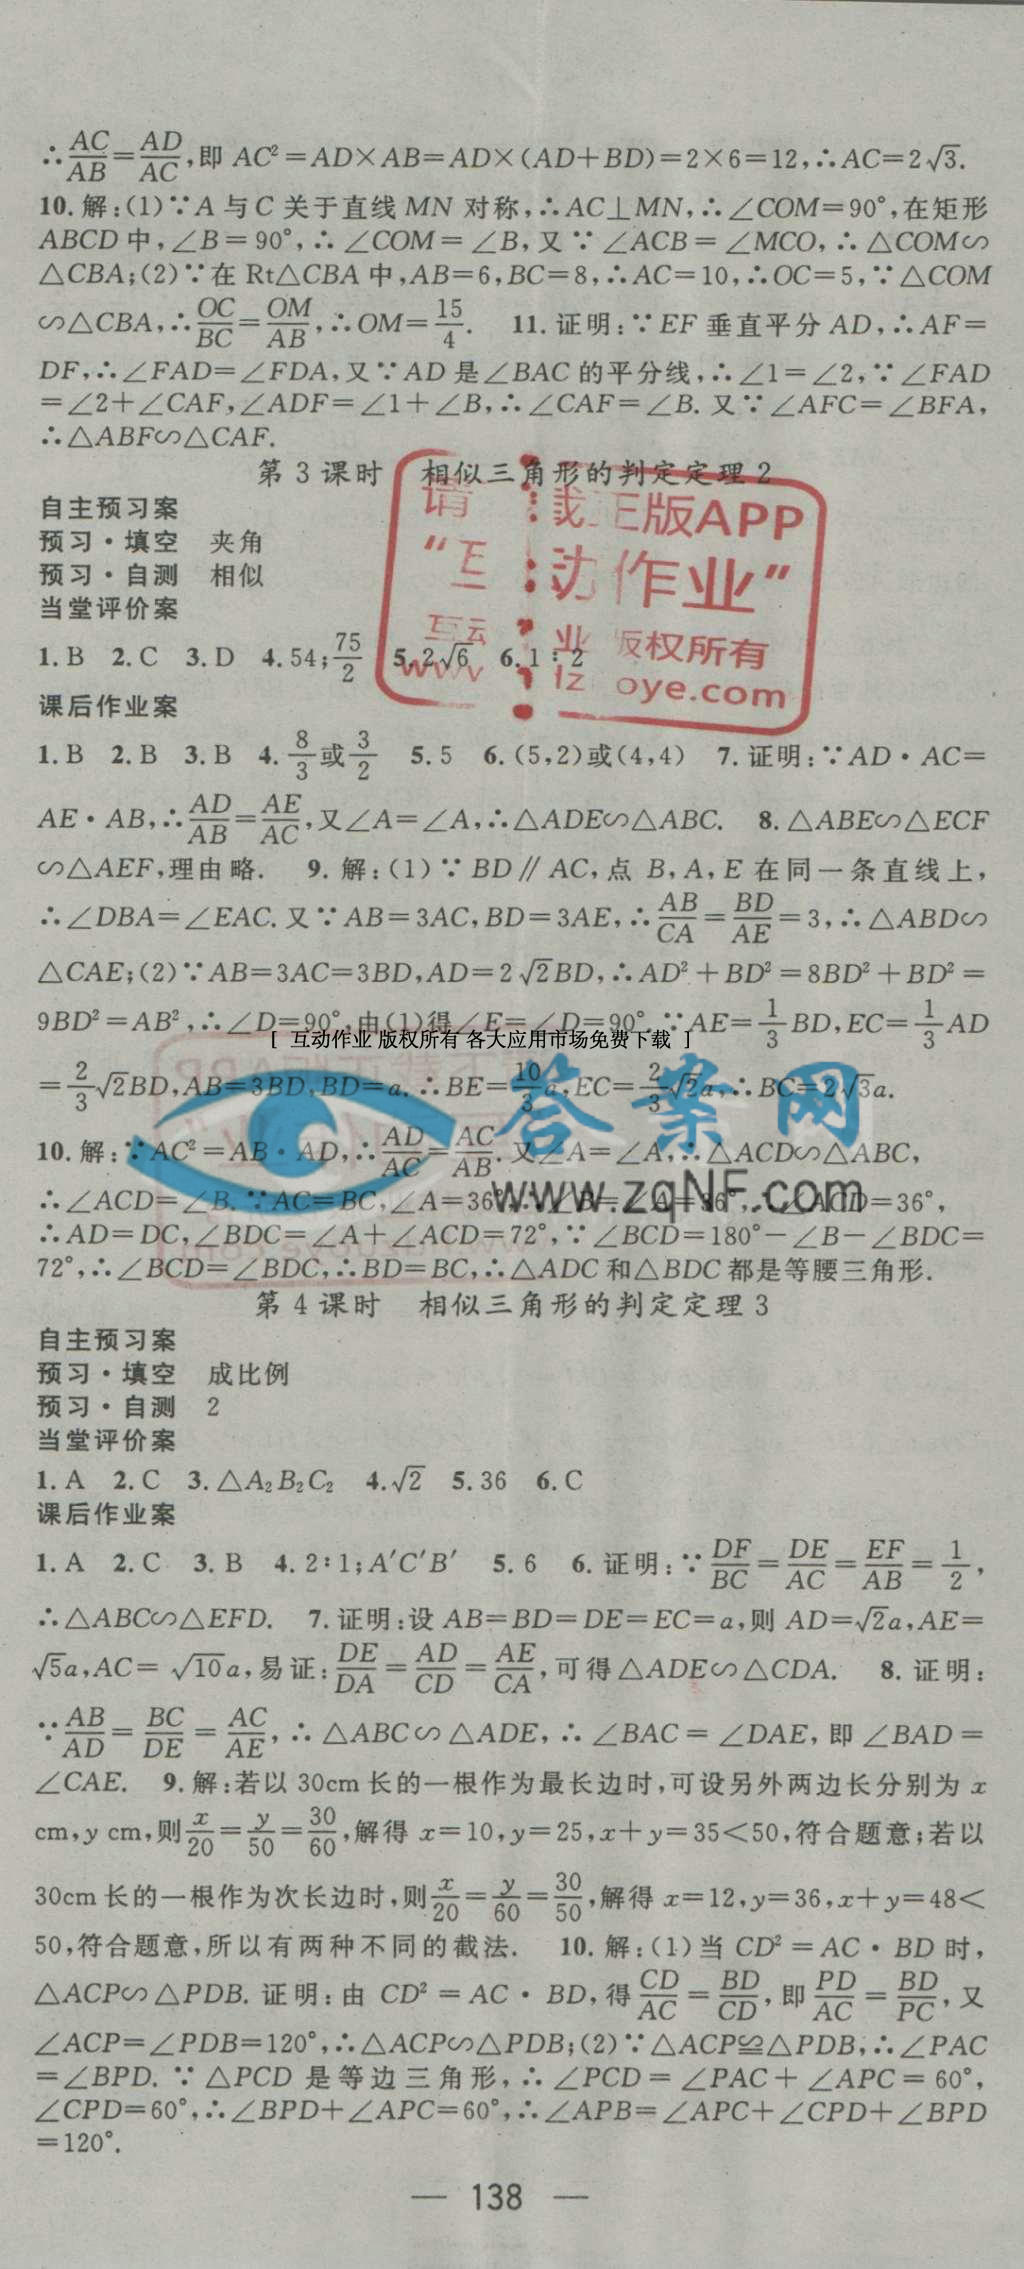 ∴AC/AB=AD/AC,即 AC²=AD×AB=AD×(AD+BD)=2×6=12,∴AC=2√3.
10.解:(1)∵A 与 C 关于直线 MN 对称,∴AC⊥MN,∴∠COM=90°,在矩形
ABCD 中,∠B=90°,∴∠COM=∠B,又∵∠ACB=∠MCO,∴△COM∽
△CBA;(2)∵在 Rt△CBA 中,AB=6,BC=8,∴AC=10,∴OC=5,∵△COM
∽△CBA,∴OC/BC=OM/AB,∴OM=15/4. 11.证明:∵EF 垂直平分 AD,∴AF=
DF,∴∠FAD=∠FDA,又∵AD 是∠BAC 的平分线,∴∠1=∠2,∵∠FAD
=∠2+∠CAF,∠ADF=∠1+∠B,∴∠CAF=∠B.又∵∠AFC=∠BFA,
∴△ABF∽△CAF.
第 3 课时 相似三角形的判定定理 2
自主预习案
预习·填空 夹角
预习·自测 相似
当堂评价案
1.B 2.C 3.D 4.54;75/2 5.2√6 6.1∶2
课后作业案
1.B 2.B 3.B 4.8/3或3/2 5.5 6.(5,2)或(4,4) 7.证明:∵AD·AC=
AE·AB,∴AD/AB=AE/AC,又∠A=∠A,∴△ADE∽△ABC. 8.△ABE∽△ECF
∽△AEF,理由略. 9.解:(1)∵BD∥AC,点 B,A,E 在同一条直线上,
∴∠DBA=∠EAC.又∵AB=3AC,BD=3AE,∴AB/CA=BD/AE=3,∴△ABD∽
△CAE;(2)∵AB=3AC=3BD,AD=2√2BD,∴AD²+BD²=8BD²+BD²=
9BD²=AB²,∴∠D=90°,由(1)得∠E=∠D=90°.∵AE=1/3BD,EC=1/3AD
[ 互动作业 版权所有 各大应用市场免费下载 ]
=2/3√2BD,AB=3BD,BD=a.∴BE=10/3a,EC=2/3√2a,∴BC=2√3a.
10.解:∵AC²=AB·AD,∴AD/AC=AC/AB.又∠A=∠A,∴△ACD∽△ABC,
∴∠ACD=∠B.∵AC=BC,∠A=36°,∴∠B=∠A=36°,∴∠ACD=36°,
∴AD=DC,∠BDC=∠A+∠ACD=72°,∵∠BCD=180°-∠B-∠BDC=
72°,∴∠BCD=∠BDC,∴BD=BC,∴△ADC 和△BDC 都是等腰三角形.
答案网
www.zqNF.com
第 4 课时 相似三角形的判定定理 3
自主预习案
预习·填空 成比例
预习·自测 2
当堂评价案
1.A 2.C 3.△A₂B₂C₂ 4.√2 5.36 6.C
课后作业案
1.A 2.C 3.B 4.2∶1;A′C′B′ 5.6 6.证明:∵DF/BC=DE/AC=EF/AB=1/2,
∴△ABC∽△EFD. 7.证明:设 AB=BD=DE=EC=a,则 AD=√2a,AE=
√5a,AC=√10a,易证:DE/DA=AD/CD=AE/CA,可得△ADE∽△CDA. 8.证明:
∵AB/AD=BC/DE=AC/AE,∴△ABC∽△ADE,∴∠BAC=∠DAE,即∠BAD=
∠CAE. 9.解:若以 30cm 长的一根作为最长边时,可设另外两边长分别为 x
cm,y cm,则x/20=y/50=30/60,解得 x=10,y=25,x+y=35<50,符合题意;若以
30cm 长的一根作为次长边时,则x/20=y/60=30/50,解得 x=12,y=36,x+y=48<
50,符合题意,所以有两种不同的截法. 10.解:(1)当 CD²=AC·BD 时,
△ACP∽△PDB.证明:由 CD²=AC·BD,得CD/AC=BD/CD,即PD/AC=BD/PC,又
∠ACP=∠PDB=120°,∴△ACP∽△PDB;(2)∵△ACP≌△PDB,∴∠PAC
=∠BPD.∵△PCD 是等边三角形,∴∠PCD=∠PAC+∠APC=60°,
∠CPD=60°,∴∠BPD+∠APC=60°,∴∠APB=∠APC+∠CPD+∠BPD
=120°.
— 138 —